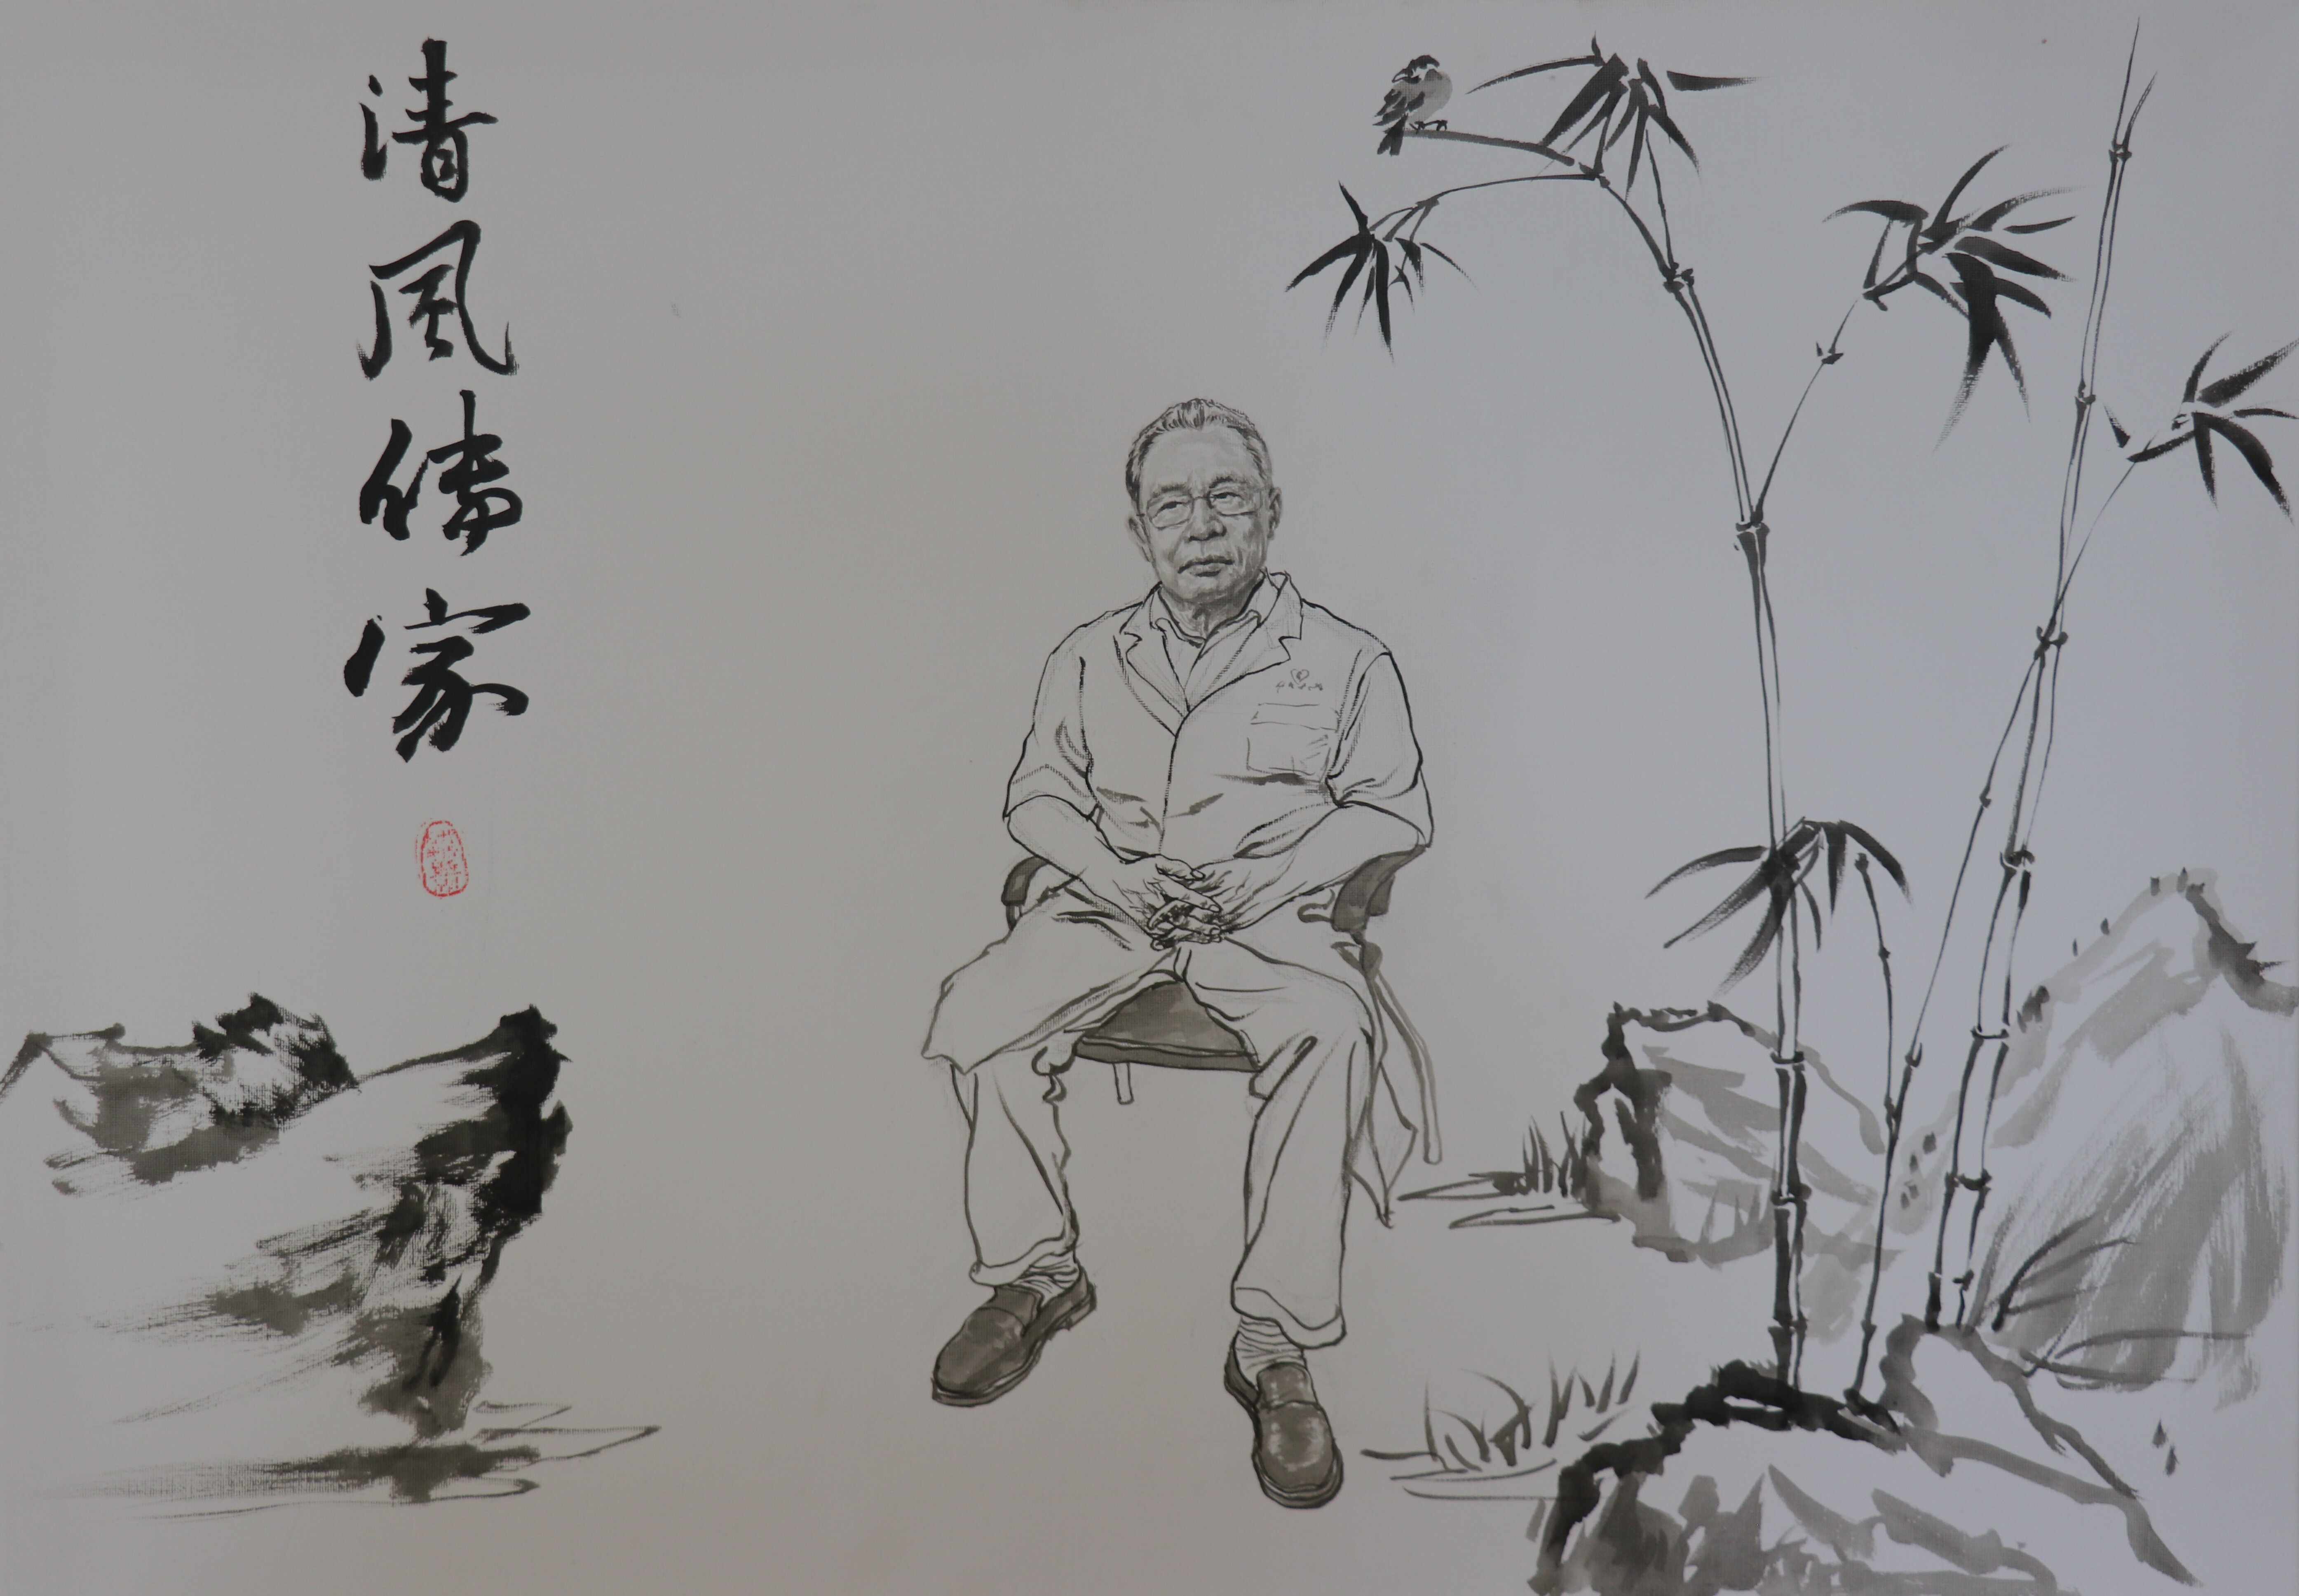 清風傳家